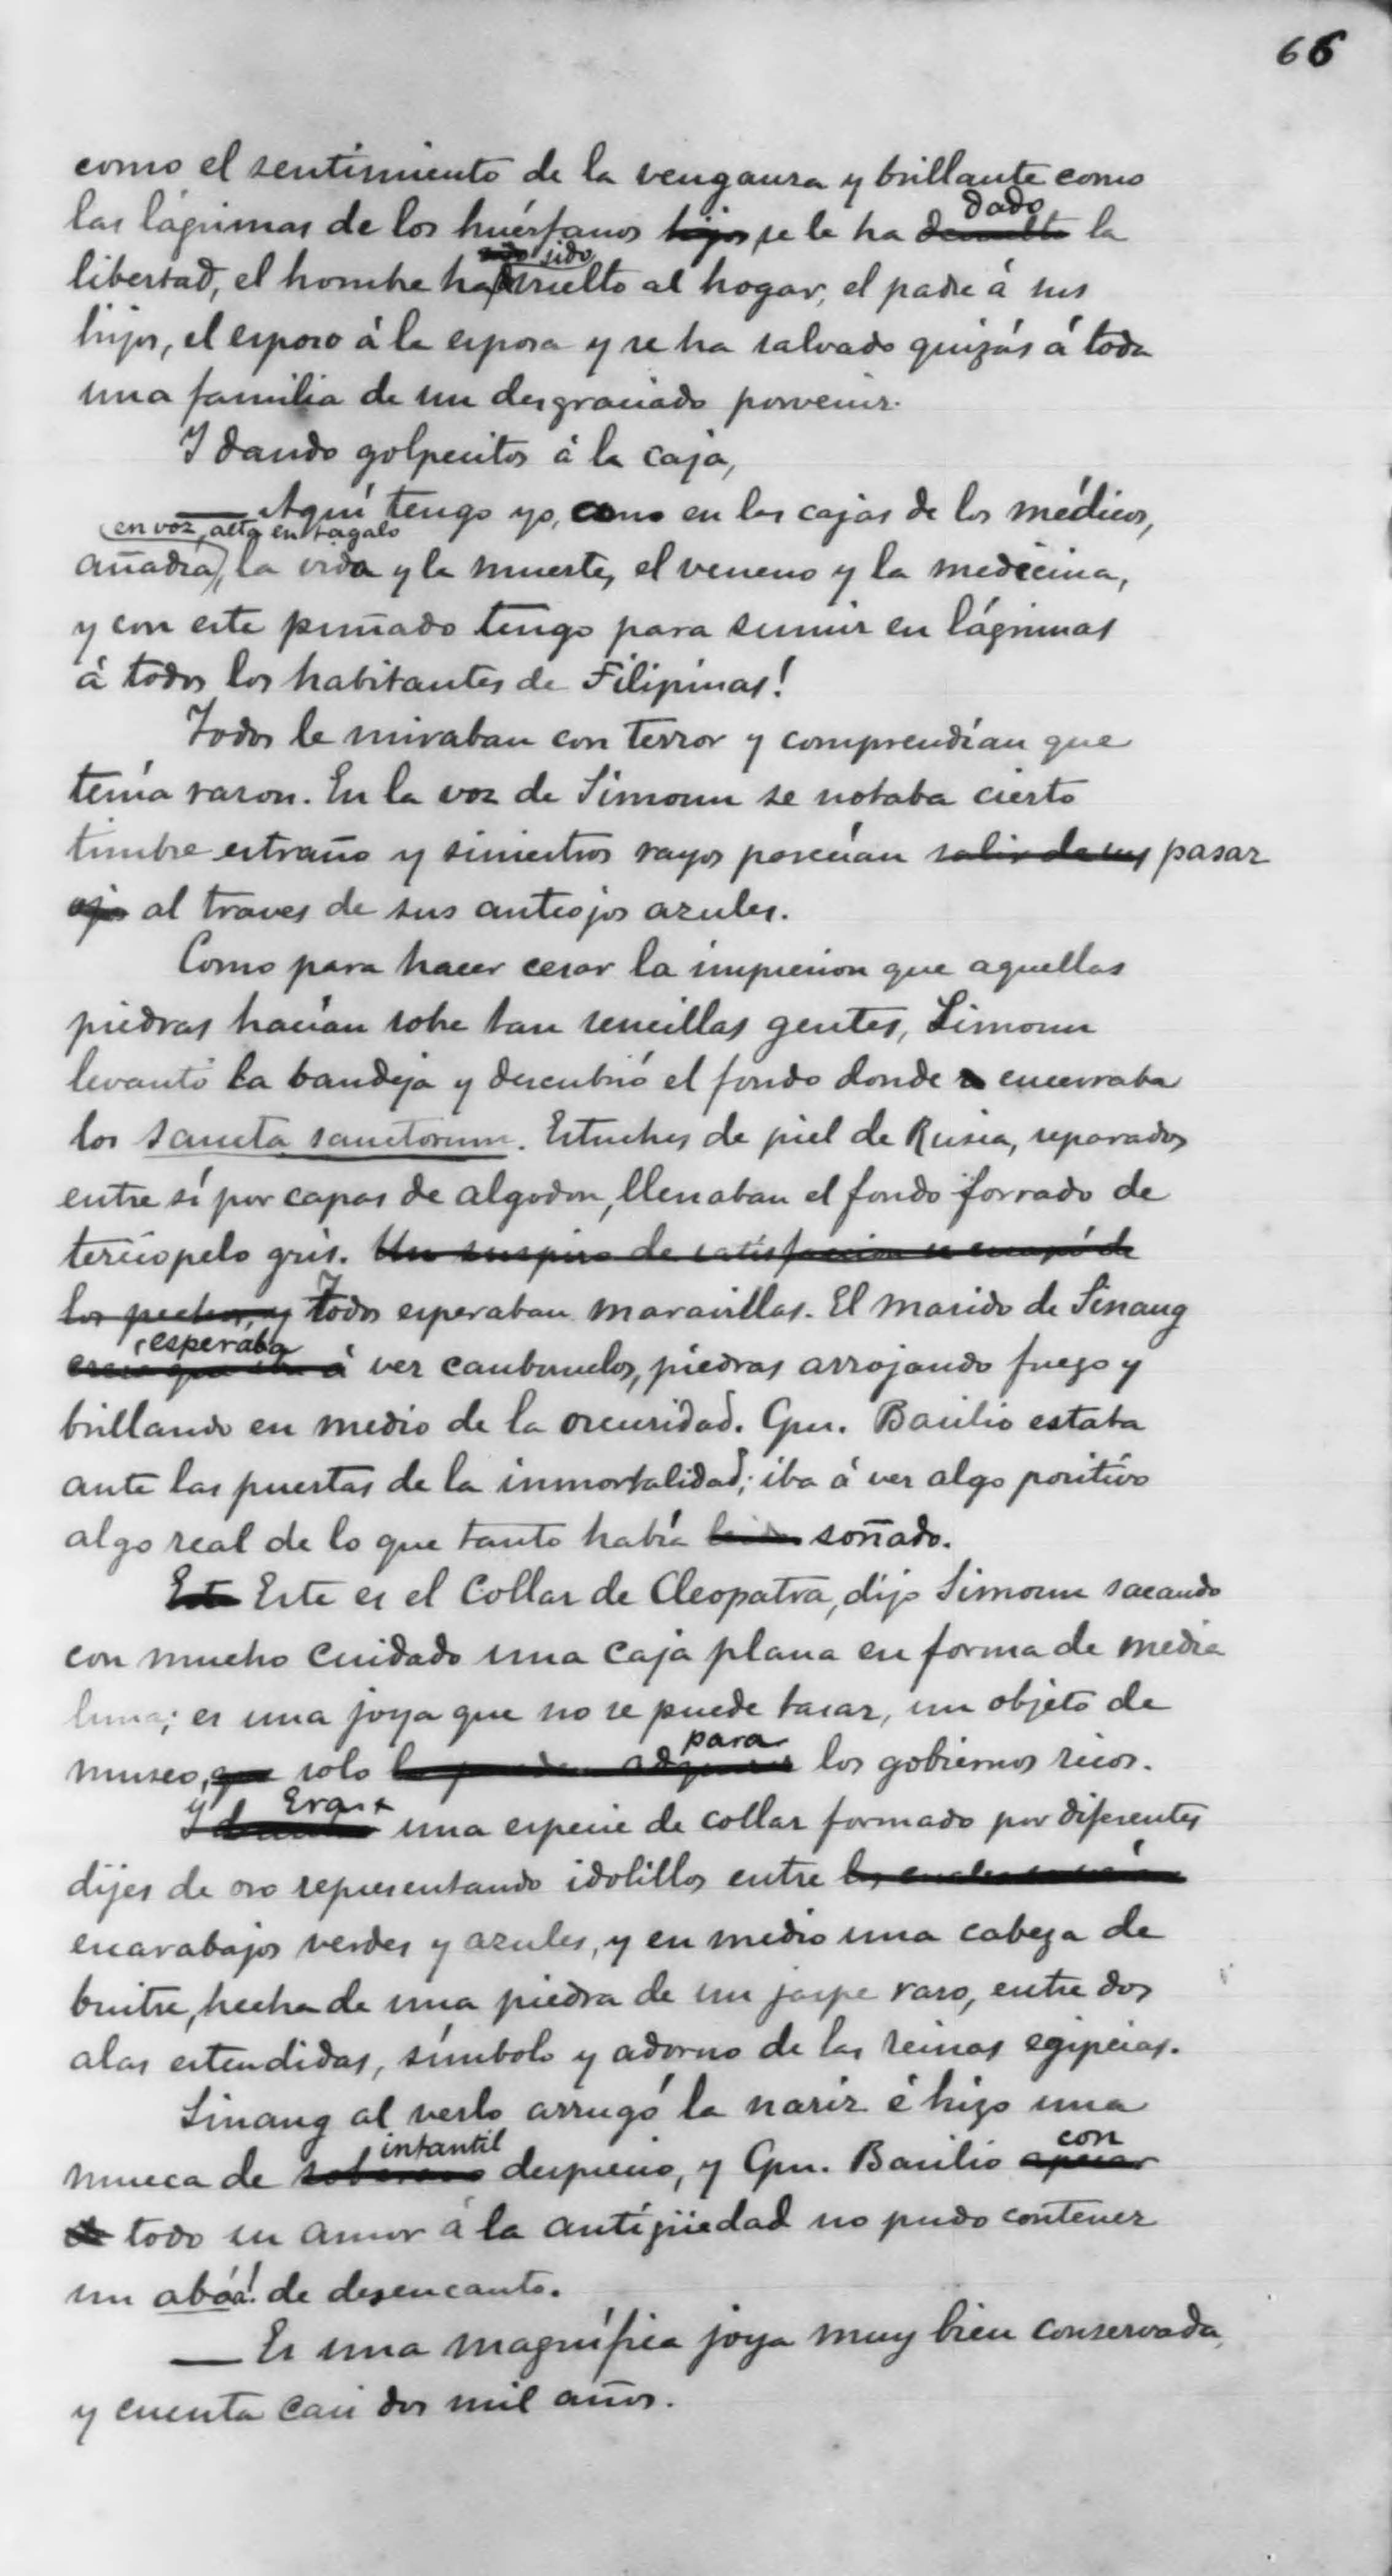 66
como el sentimiento de la venganza y brillante como
las lágrimas de los huérfanos hijos se le ha devuelto dado la
libertad, el hombre ha sido vuelto al hogar, el padre á sus
hijos, el esposo á la esposa y se ha salvado quizás á toda
una familia de un desgraciado porvenir.
Y dando golpecitos á la caja,
— Aquí tengo yo, como en las cajas de los médicos,
(en voz alta en tagalo
añadía), la vida y la muerte, el veneno y la medicina,
y con este puñado tengo para sumir en lágrimas
á todos los habitantes de Filipinas!
Todos le miraban con terror y comprendían que
tenía razon. En la voz de Simoun se notaba cierto
timbre estraño y siniestros rayos parecían salir de sus pasar
ojos al traves de sus anteojos azules.
Como para hacer cesar la impresion que aquellas
piedras hacían sobre tan sencillas gentes, Simoun
levantó la bandeja y descubrió el fondo donde encerraba
los sancta sanctorum. Estuches de piel de Rusia, separados
entre sí por capas de algodon, llenaban el fondo forrado de
terciopelo gris. Un suspiro de satisfaccion se escapó de
los pechos, y Todos esperaban maravillas. El marido de Sinang
esperaba
creía que iba á ver carbunclos, piedras arrojando fuego y
brillando en medio de la oscuridad. Cpn. Basilio estaba
ante las puertas de la inmortalidad; iba á ver algo positivo
algo real de lo que tanto había leido soñado.
Este Este es el collar de Cleopatra, dijo Simoun sacando
con mucho cuidado una caja plana en forma de media
luna; es una joya que no se puede tasar, un objeto de
para
museo, que solo la pueden adquirir los gobiernos ricos.
y Era
una especie de collar formado por diferentes
dijes de oro representando idolillos entre
escarabajos verdes y azules, y en medio una cabeza de
buitre, hecha de una piedra de un jaspe raro, entre dos
alas estendidas, símbolo y adorno de las reinas egipcias.
Sinang al verlo arrugó la nariz é hizo una
infantil con
mueca de soberano desprecio, y Cpn. Basilio apesar
de todo su amor á la antigüedad no pudo contener
un abáa! de desencanto.
— Es una magnífica joya muy bien conservada
y cuenta casi dos mil años.